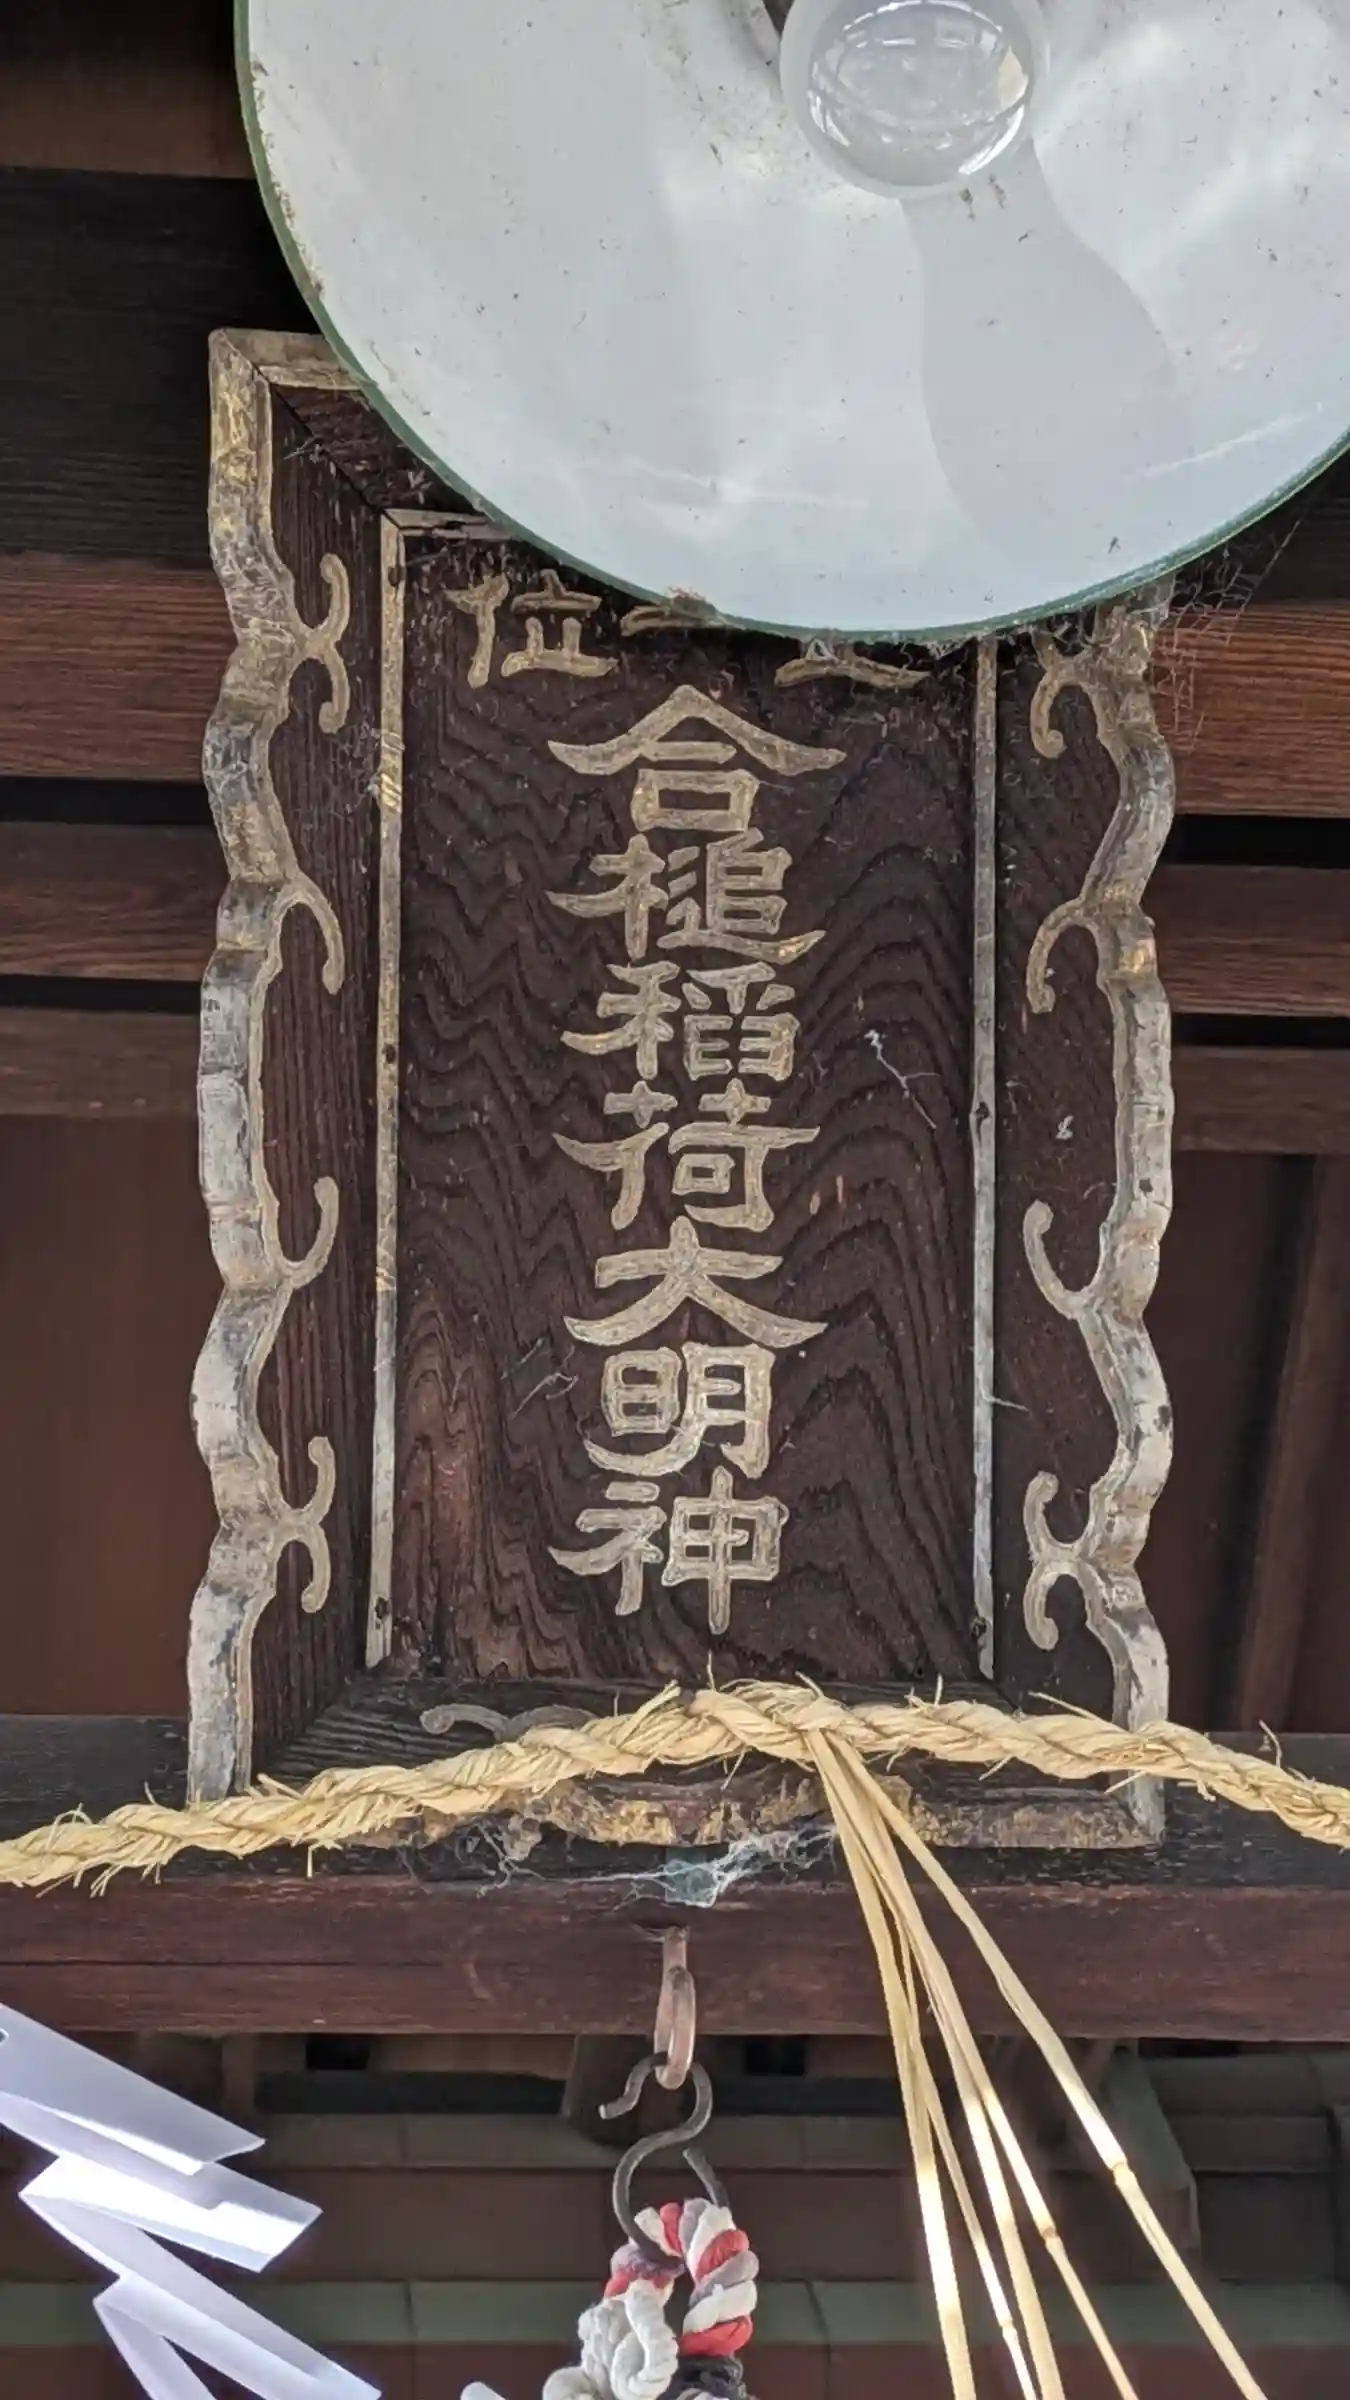 正一位
合槌稲荷大明神